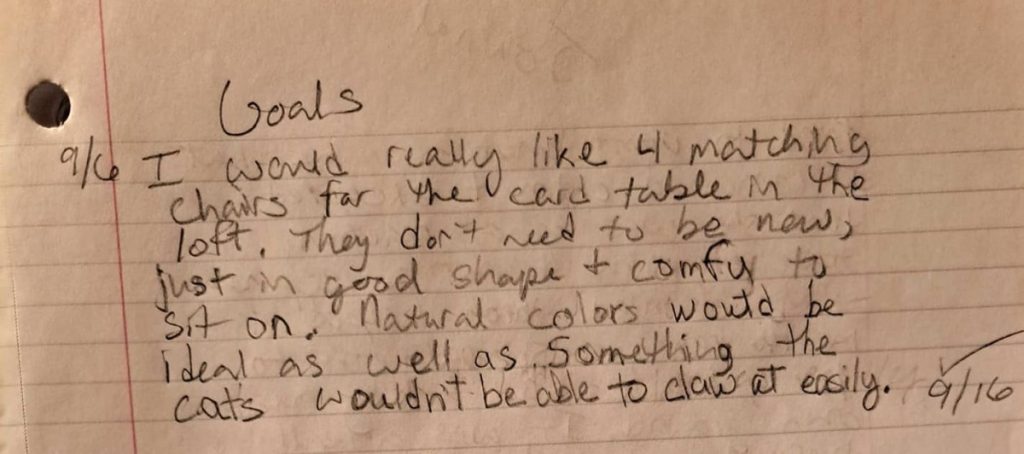 Goals
9/6 I would really like 4 matching
chairs for the card table in the
loft. They don't need to be new,
just in good shape + comfy to
sit on. Natural colors would be
ideal as well as something the
cats wouldn't be able to claw at easily. 9/16